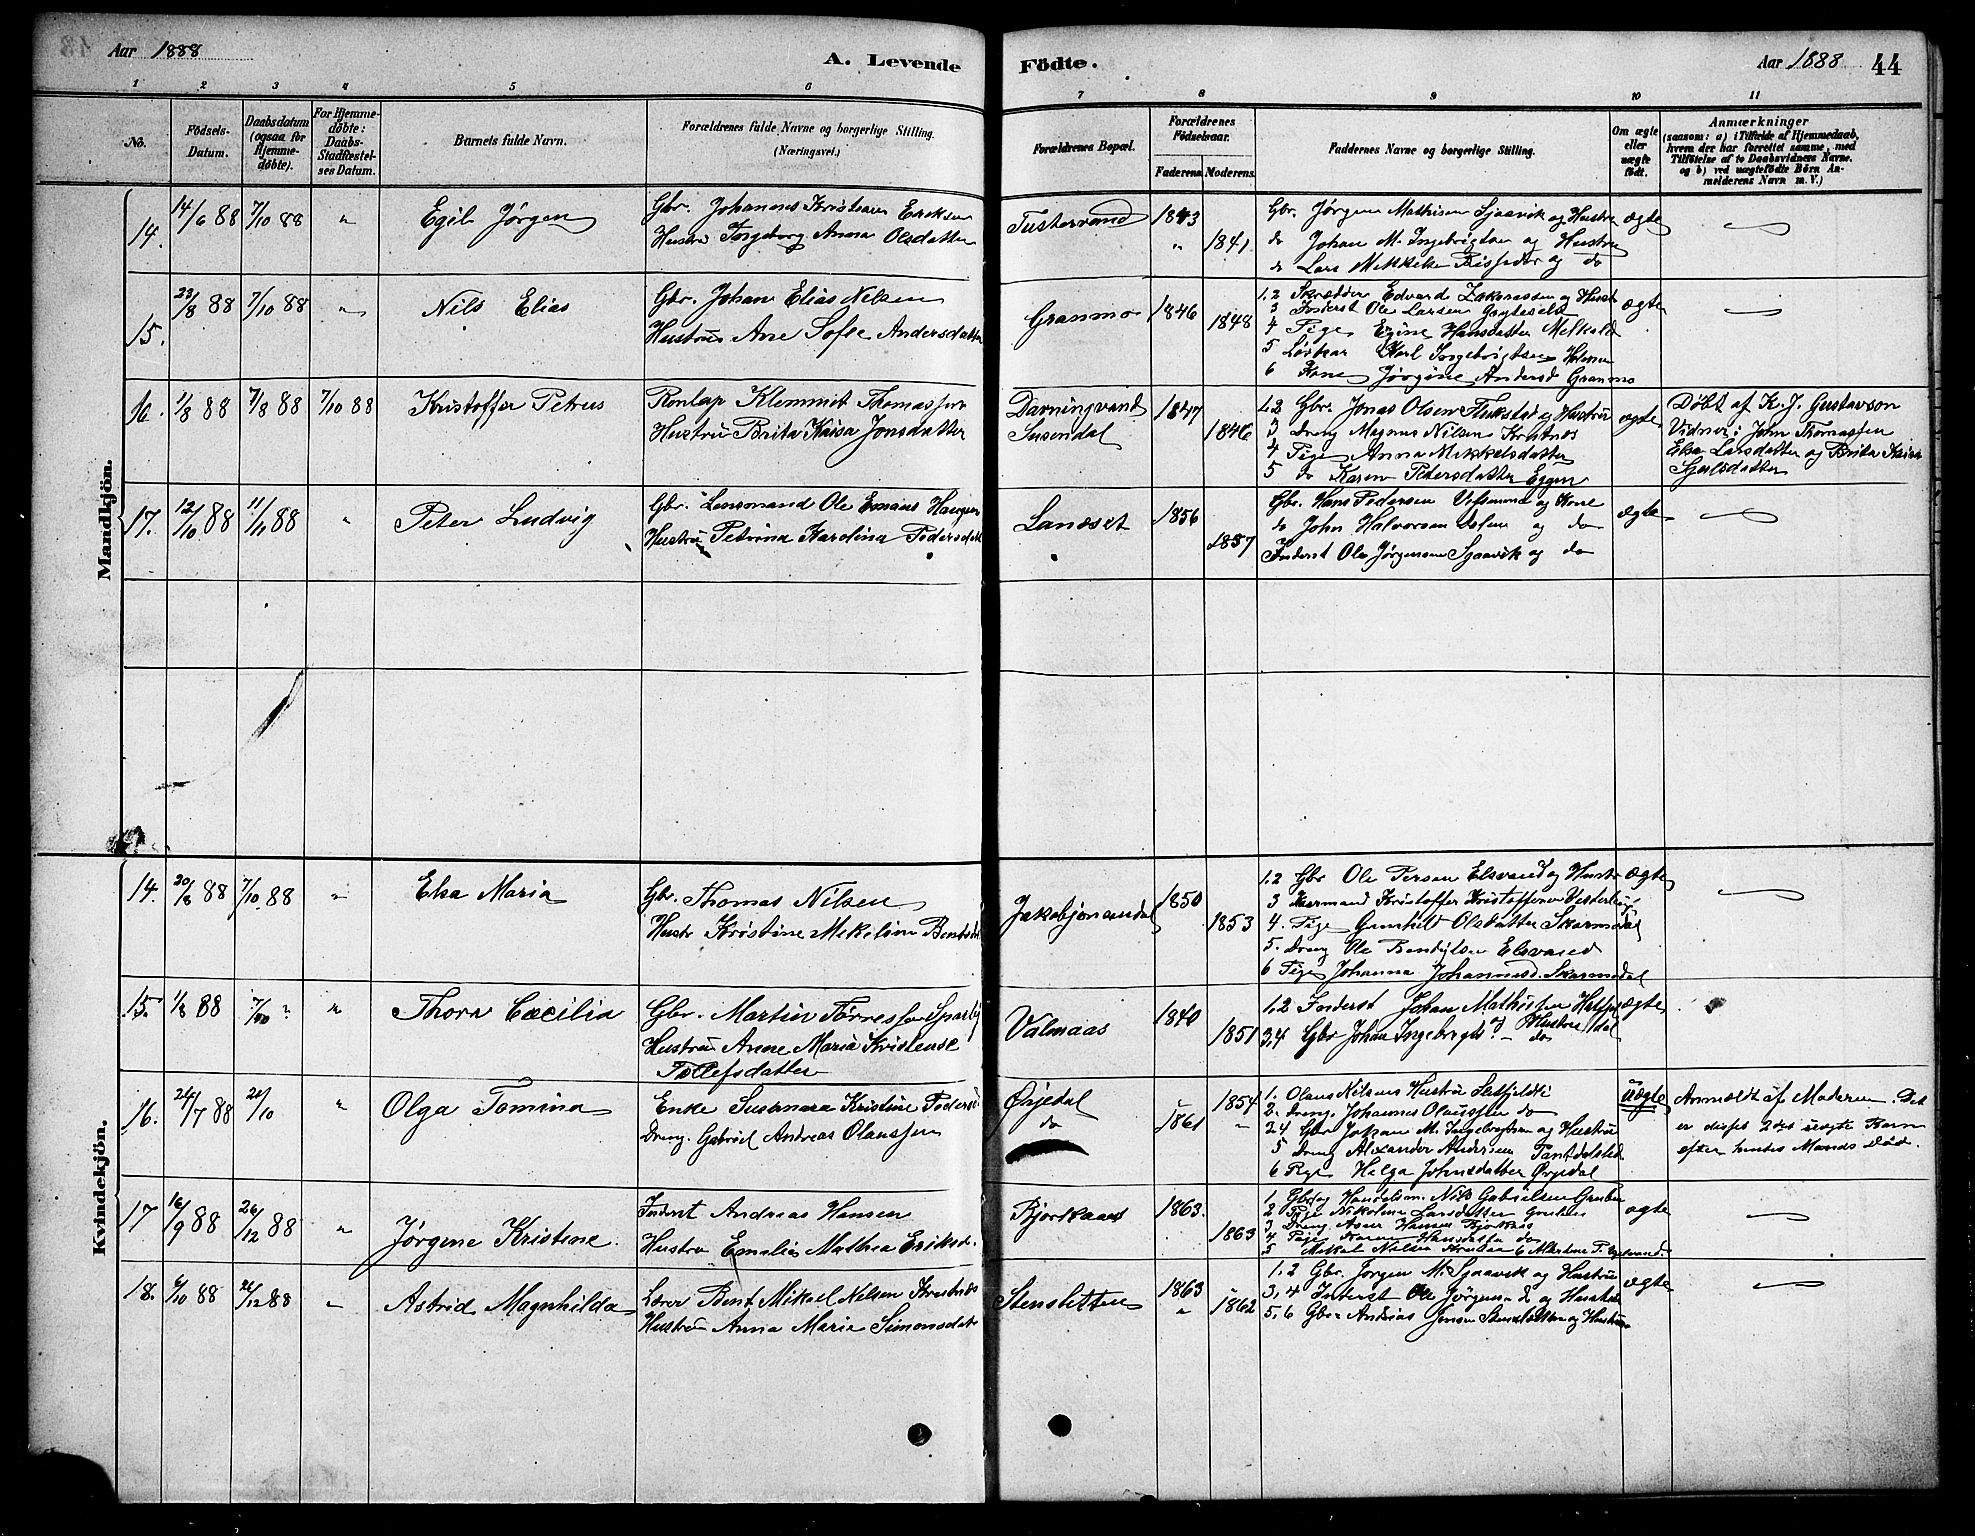 Aar 1888
A. Levende
Födte.
Aar 1888
44
1 2 3 4 5 6 7 8 9 10 11
No.
Födsels-
Datum.
Daabsdatum
(ogsaa for
Hjemme-
döbte).
For Hjemme-
döbte:
Daabs-
Stadfæstel-
ses Datum.
Barnets fulde Navn.
Forældrenes fulde Navne og borgerlige Stilling.
(Næringsvei.)
Forældrenes Bopæl.
Forældrenes
Födselsaar.
Faderens. Moderens.
Faddernes Navne og borgerlige Stilling.
Om ægte
eller
uægte
födt.
Anmærkninger
(saasom: a) i Tilfælde af Hjemmedaab,
hvem der har forrettet samme, med
Tilföielse af to Daabsvidners Navne.
og b) ved uægtefödte Börn An-
melderens Navn m. V.)
Mandkjön.
14. 14/6 88 7/10 88 " Egil Jørgen
Gbr. Johannes Kristian Eriksen
Hustru Ingeborg Anna Olsdatter
Tustervand 1843 " 1841.
Gbr. Jørgen Mathisen Sjaavik og Hustru
do Johan M. Ingebrigtsen og Hustru
do Lars Mikkelsen og do
ægte
15. 23/8 88 7/10 88 " Nils Elias
Gbr. Johan Elias Nelsen
Hustru Ane Sofie Andersdatter
Granmo 1846 1848
1.2 Skrædder Edvard Zakariassen og Hustr
3 Inderst Ole Larsen
4 Pige Egine Hansdatter
5 Karl Ingebrigtsen
6 Kone Jørgine Andersd Granmo
ægte
16. 1/8 88 7/8 88 7/10 88 Kristoffer Petrus
Klemmet Thomassen
Hustru Brita Kaisa Jonsdatter
Susendal 1847 1846
1.2 Gbr. Jonas Olsen og Hustru
3 Dreng Magnus Nilsen
4 Pige Anna Mikkelsdatter
5 do Karen Pedersdatter Eggen
ægte
Døbt af K. J. Gustavson
Vidner: John Thomassen
Elsa Larsdatter og Brita Kaisa
Sjulsdatter
17. 12/10 88 11/11 88 " Peter Ludvig
Gbr. Lensmand Ole
Hustru Petrina Karolina Pedersdatt
Landset 1856 1857
Gbr. Hans Pedersen og Kone
do John Halvorsen og do
Inderst Ole Jørgensen Sjaavik og do
ægte
Kvindekjön.
14. 20/8 88 7/10 88 " Elsa Maria
Gbr. Thomas Nilsen
Hustr Kristine Mekeline
1850 1853
1.2 Gbr Ole Persen Elsvand og Hustr
3 Kristoffer Kristoffersen
4. Pige Gunhil Olsdatter Skarmodal
5. Dreng Ole Elsvand
6 Pige Johanna Johannesd. Skarmodal
ægte
15. 1/8 88 7/10 " " Thora Cæcilia
Gbr. Martin Tørressen
Hustru Anne Maria Kristense
Tollefsdatter
Valmaas 1840 1851
1.2 Inderst Johan Mathisen
3,4 Gbr Johan Ingebrigts.
ægte
16. 24/7 88 21/10 " Olga Tomina
Enke Susanna Kristine Peders.
Dreng. Gabriel Andreas Olaussen
Ørjedal 1854
do 1861 "
1. Olaus Nilsens Hustru
2. Dreng. Johannes Olaussen do
Gbr Johan M. Ingebrigtsen og Hustru
5 Dreng Alexander Andersen
6 Pige Helga Johnsdatter Ørjedal
Uægte
Anmeldt af Moderen. Det
er dennes 2det uægte Barn
efter hendes Mands Død.
17 16/9 88 26/12 88 " Jørgine Kristine.
Inderst Andreas Hansen
Hustru Emelie Mathea Eriksd.
Bjorkaas 1863. 1863
1. Gbr og Handelsm. Nils Gabrielsen
2 Pige Nikoline Larsdatter
3 Dreng Hansen
4 Pige Karen Hansdatter do
5 Mikal Nilsen
ægte
18. 6/10 88 26/12 88 " Astrid Magnhilda
Lærer Bent Mikael Nelsen
Hustru Anna Marie Simonsdat
Stensletten 1863 " 1862
1.2 Gbr. Jørgen M. Sjaavik og Hustru
3,4 Inderst Ole Jørgensen og Hustru
5,6 Gbr. Andreas Jensen Stensletten og Hustru
ægte